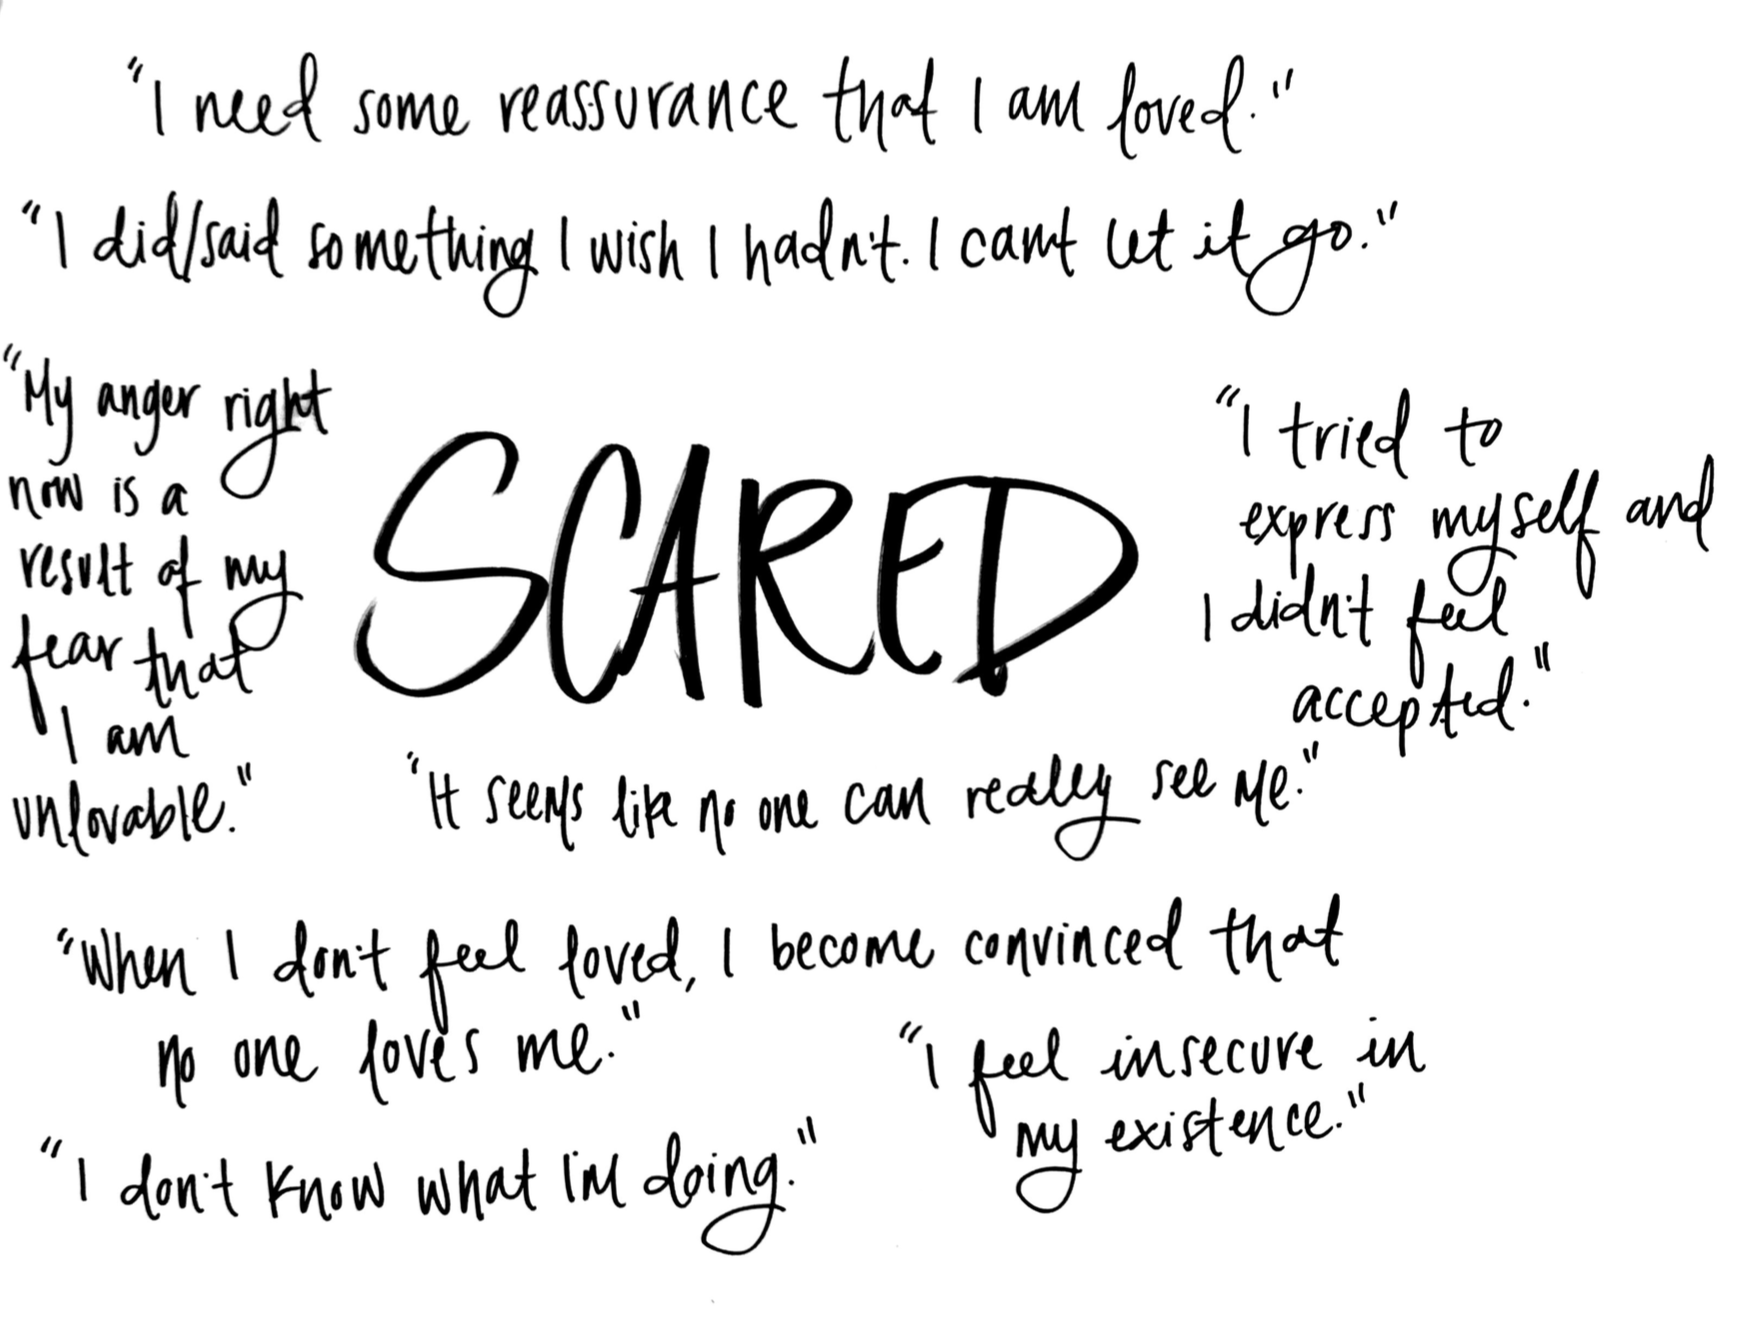 "I need some reassurance that I am loved."
"I did/said something I wish I hadn't. I can't let it go."
"My anger right
now is a
result of my
fear that
I am
unlovable."
SCARED
"I tried to
express myself and
I didn't feel
accepted."
"It seems like no one can really see me."
"When I don't feel loved, I become convinced that
no one loves me."
"I feel insecure in
my existence."
"I don't know what I'm doing."